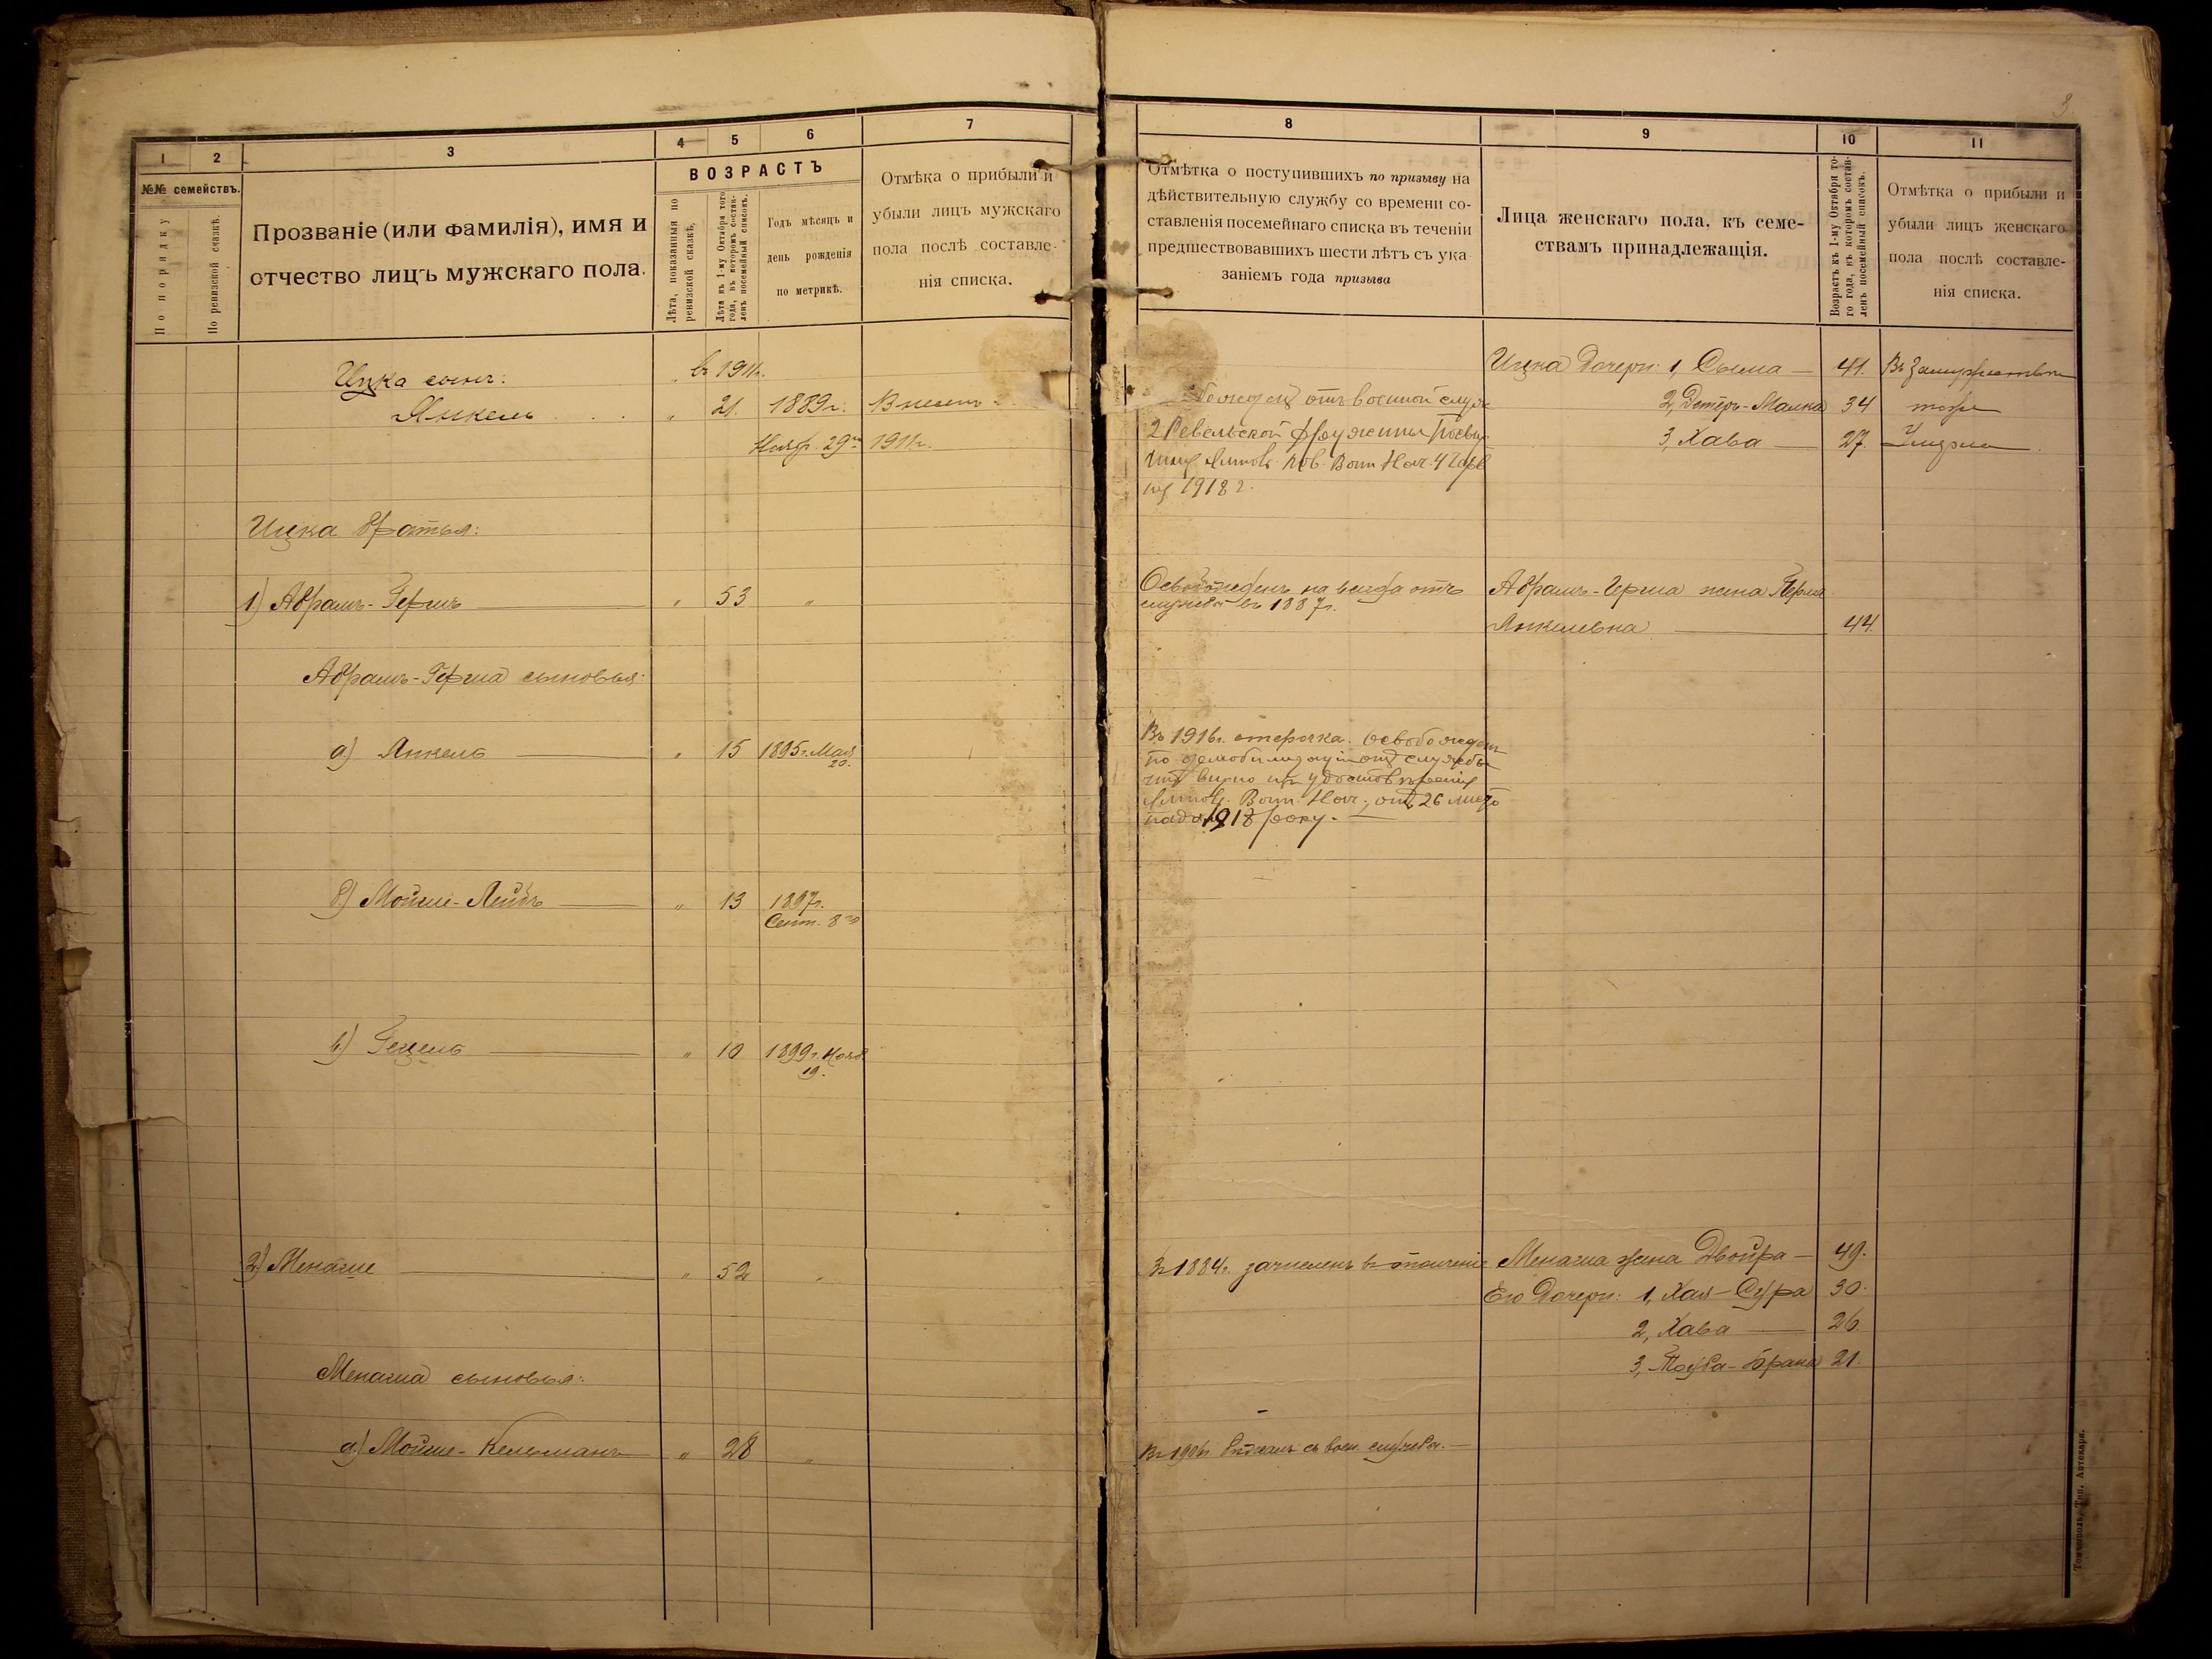 3.
1
2
3
4
5
6
7
№№ семействъ.
По порядку
По ревизской сказкѣ.
Прозваніе (или фамилія), имя и
отчество лицъ мужскаго пола.
ВОЗРАСТЪ
Лѣта, показанныя по
ревизской сказкѣ.
Лѣта къ 1-му Октября того
года, въ которомъ состав-
ленъ посемейный списокъ.
Годъ мѣсяцъ и
день рожденія
по метрикѣ.
Отмѣка о прибыли и
убыли лицъ мужскаго
пола послѣ составле-
нія списка.
Ицка сынъ:
„ въ 1911г.
Янкель . . . „ 21. 1889г.
Нояб. 29го 1911г.
Ицка братья:
1) Абрамъ-Гершъ „ 53 „
Абрамъ-Герша сыновья:
а) Янкель „ 15 1895г. Мая
20.
б) Мойше-Лейбъ „ 13 1897г.
Сент. 8го
в) Гецель „ 10 1899г. Нояб.
19.
2) Менаше „ 52 „
Менаша сыновья:
а) Мойше-Кельманъ „ 28 „
8
9
10
11
Отмѣтка о поступившихъ по призыву на
дѣйствительную службу со времени со-
ставленія посемейнаго списка въ теченіи
предшествовавшихъ шести лѣтъ съ ука
заніемъ года призыва
Лица женскаго пола, къ семе-
ствамъ принадлежащія.
Возрастъ къ 1-му Октября то-
го года, въ которомъ состав-
ленъ посемейный списокъ.
Отмѣтка о прибыли и
убыли лицъ женскаго
пола послѣ составле-
нія списка.
Ицка дочери: 1, Сыма 41. Въ замужествѣ
2, Дотеръ-Малка 34 тоже
3, Хава 27. Умерла
отъ военной служ
2 Ревельской дружины
Пов. Воин. Нач. 4
1918 г.
Освобожденъ на всегда отъ
службы въ 1887г.
Абрамъ-Герша жена Перля
Янкелевна 44.
Въ 1916г. отсрочка. освобожден
по демобилизаціи отъ службы
видно изъ удостовѣренія
Воин. Нач. отъ 26 листо
пада 1918 року.
Въ 1884г. зачисленъ въ ополченіе
Менаша жена Двойра 49.
Его дочери: 1, Хая-Сура 30.
2, Хава 26.
3, Тауба-Брана 21.
Въ 1906г. съ воен. службы.
Томашполь, Тип. Аптекаря.